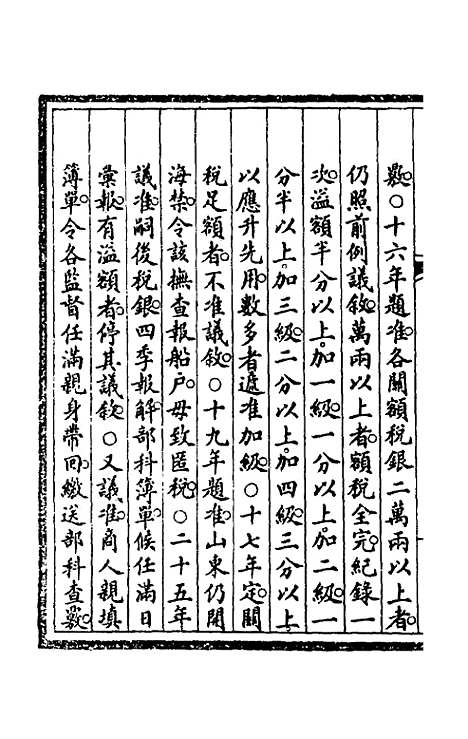 覈○十六年題准各關額稅銀二萬兩以上者
仍照前例議敘萬兩以上者額稅全完紀錄一
次溢額半分以上加一級一分以上加二級一
分半以上加三級二分以上加四級三分以上
以應升先用數多者遞准加級○十七年定關
稅足額者不准議敘○十九年題准山東仍開
海禁令該撫查報船戶毋致匿稅○二十五年
議准嗣後稅銀四季報解部科簿單候任滿日
彙報有溢額者停其議敘○又議准商人親填
簿單令各監督任滿親身帶回繳送部科查覈